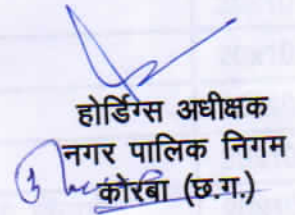 होर्डिग्स अधीक्षक
नगर पालिक निगम
कोरबा (छ.ग.)